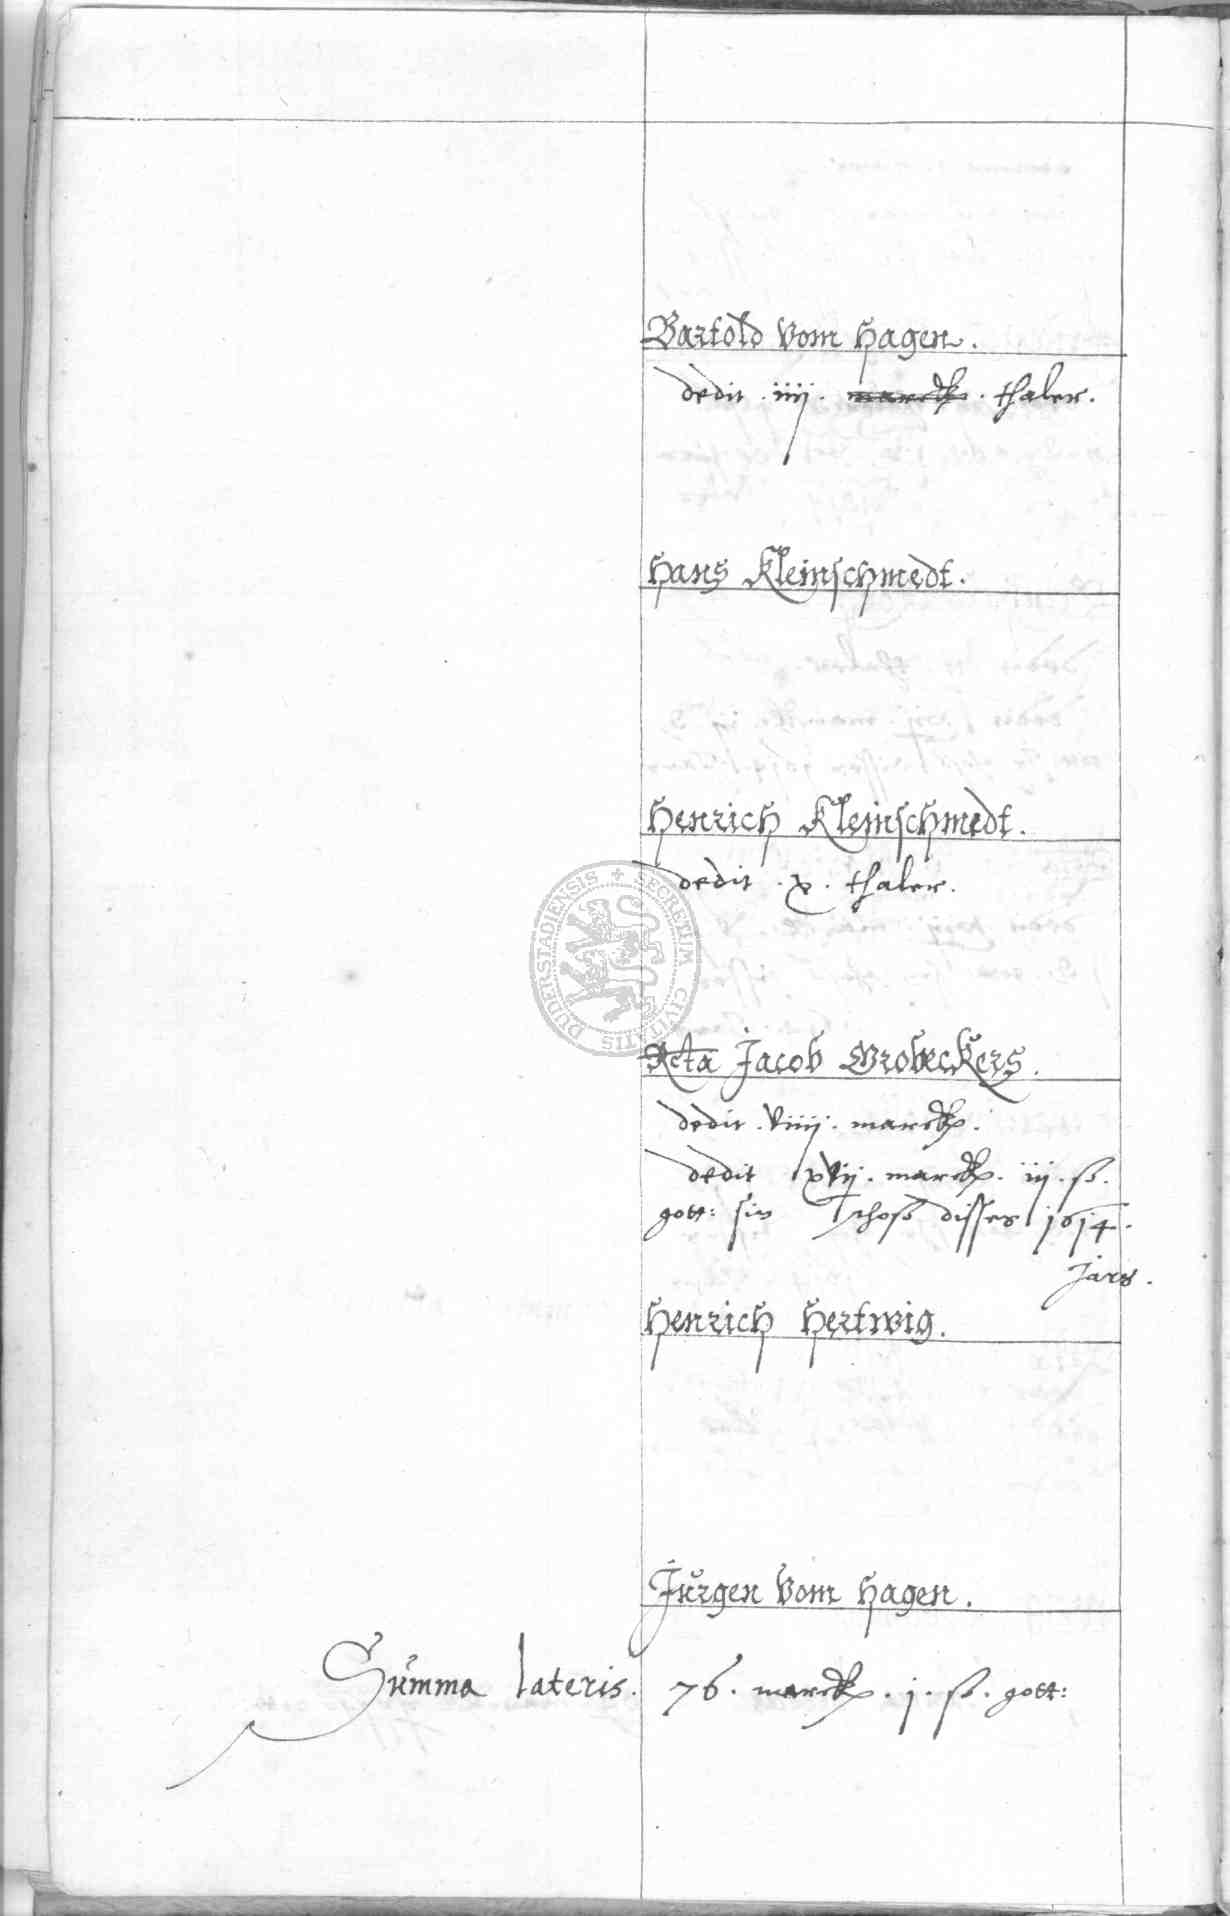 Bartold vom Hagen.
dedit .iiij. marck. thaler.
Hans Kleinschmedt.
Henrich Kleinschmedt.
dedit .x. thaler.
DUDERSTADIENSIS + SECRETUM CIVITATIS
Rcta Jacob Grobeckers.
dedit .viiij. marck.
dedit xvij. marck. iij. ß.
gott: sin schoß disses 1614.
Jars.
Henrich Hertwig.
Jürgen vom Hagen.
Summa lateris. 76. marck. j. ß. gott: